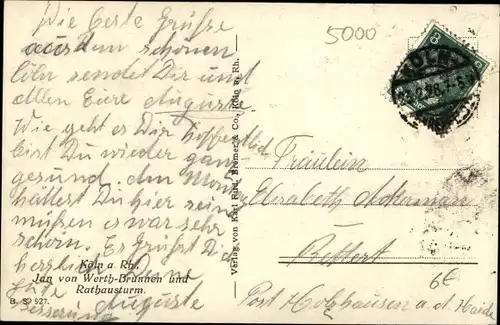 Die besten Grüße
aus dem schönen
Cöln sendet Dir und
allen Eure Auguste
Wie geht es Dir hoffentlich
bist Du wieder ganz
gesund. Am Montag
hättest Du hier sein
müßen es war sehr
schön. Es Grüßt Dich
herzlich
Gute Auguste
Besserung
Köln a. Rh.
Jan von Werth-Brunnen und
Rathausturm.
B. S. 927.
Verlag von Karl Rud. Bremer & Co., Köln a. Rh.
5000
CÖLN
Fräulein
Elisabeth Ackerman
Rettert
Post Holzhausen a. d. Haide
6E